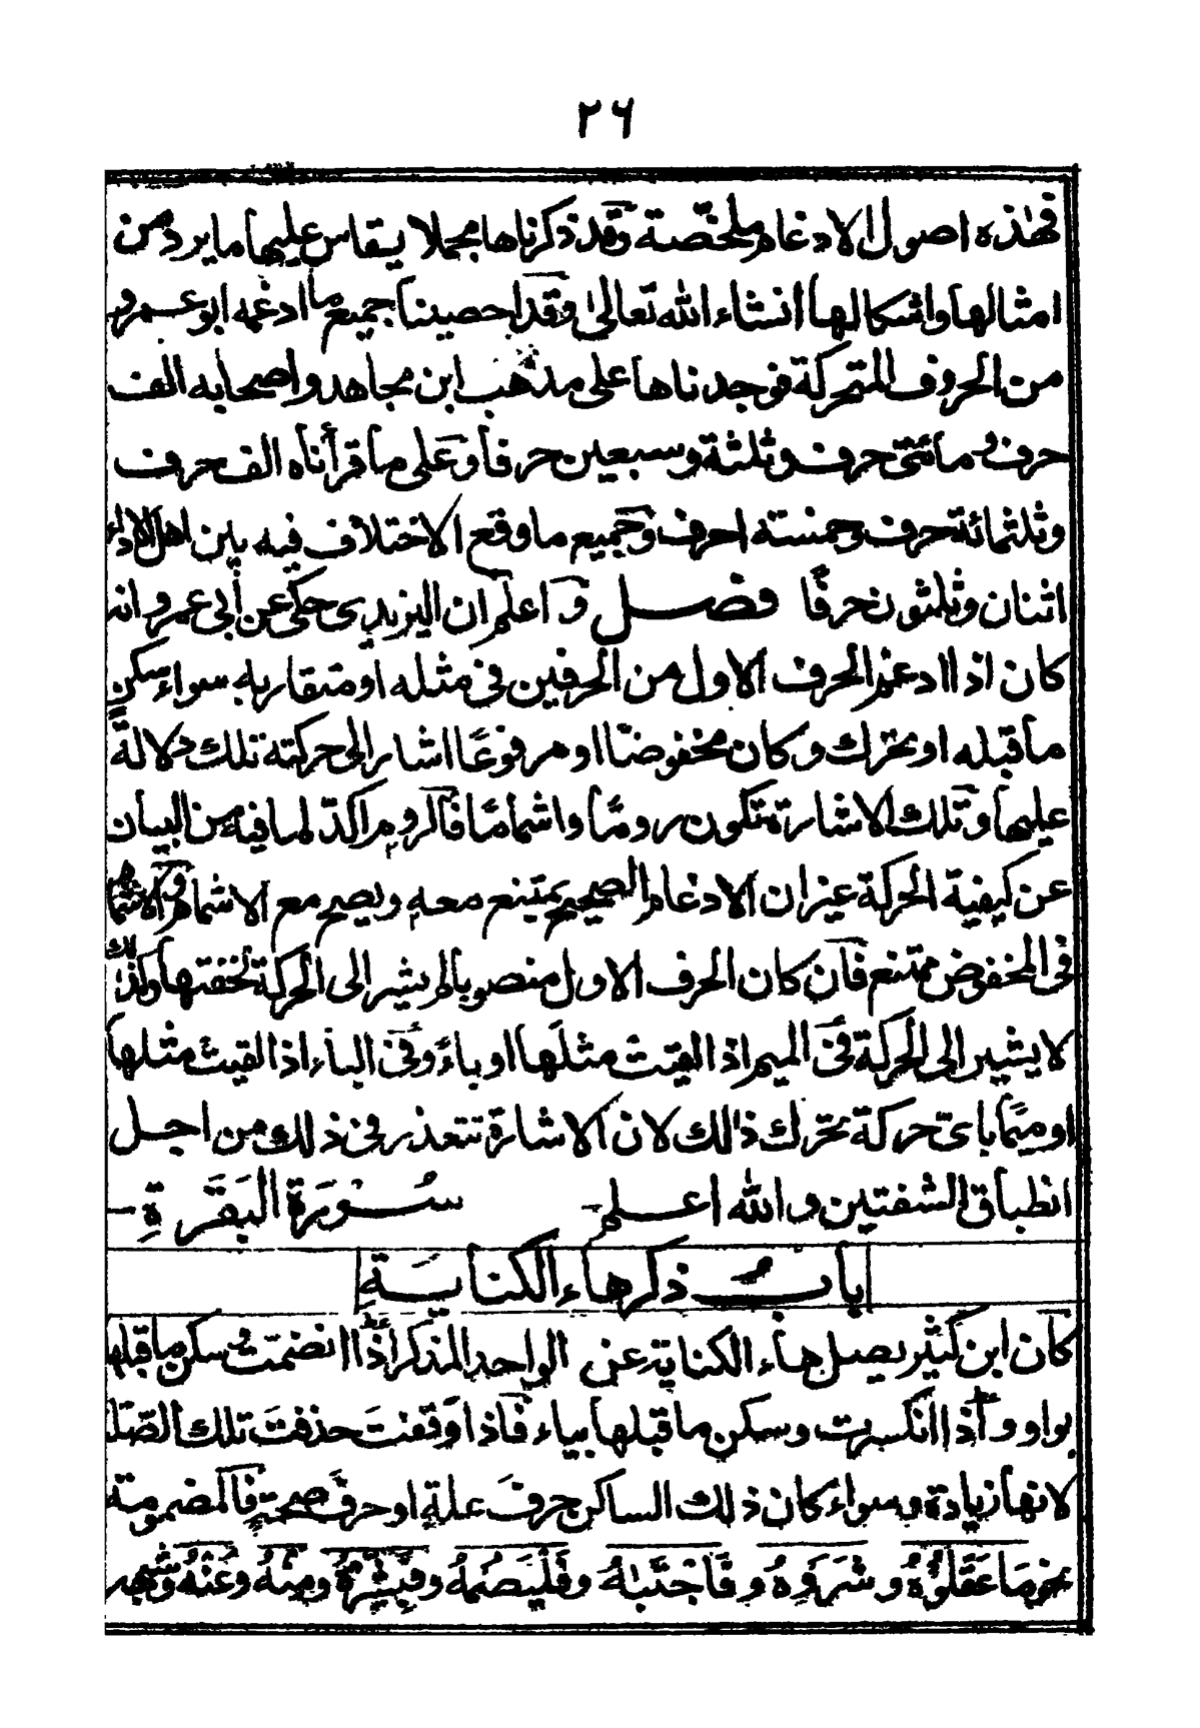 ٢٦
فهذه اصول الادغام ملخصّة وقد ذكرناها مجملا يقاس عليها ما يرد من
امثالها واشكالها انشاء الله تعالىٰ وقد احصينا جميع ما ادغمه ابو عمرو
من الحروف المتحركة فوجدناها على مذهب ابن مجاهد واصحابه الف
حرف ومائتى حرف وثلثة وسبعين حرفا وعلى ما قرأناه الف حرف
وثلثمائة حرف وخمسته احرف وجميع ما وقع الاختلاف فيه بين اهل الاداء
اثنان وثلثون حرفًا فصل واعلم ان اليزيدى حكى عن أبى عمرو انه
كان اذا ادغم الحرف الاول من الحرفين فى مثله او متقاربه سواء سكن
ما قبله او تحرّك وكان مخفوضًا او مرفوعًا اشار الى حركته تلك دلالةً
عليها وتلك الاشارة تكون رومًا واشمامًا فالروم اكدّ لما فيه من البيان
عن كيفية الحركة غيران الادغام الصحيح يمتنع معه ويصح مع الاشمام والاشمام
فى المخفوض ممتنع فان كان الحرف الاول منصوبا لم يشير الى الحركة لخفتها وكذلك
لا يشير الى الحركة فى الميم اذا لقيتْ مثلَها او باءً وفى الباء اذا لقيتْ مثلها
او ميمًا باىّ حركة تحرّك ذالك لان الاشارة تتعذر فى ذلك من اجل
انطباق الشفتين والله اعلم سُورَة البَقَرَةِ
بابُ ذكر هاء الكنايَةِ
كان ابن كثير يصل هاء الكناية عن الواحد المذكر اذا انضمت وسكن ما قبلها
بواو واذا انكسرت وسكن ما قبلها بياء فاذا وَقفتَ حذفتَ تلك الصّلة
لانها زيادة وسواء كان ذلك الساكن حرفَ علةٍ او حرفَ صحةٍ فالمضمومة
نحو مَا عَقَلُوْهُ وشَرَوْهُ وفَاجْتَبٰهُ وفَلْيَصُمْهُ وفَبَشِّرْهُ ومِنْهُ وعَنْهُ وشبهه